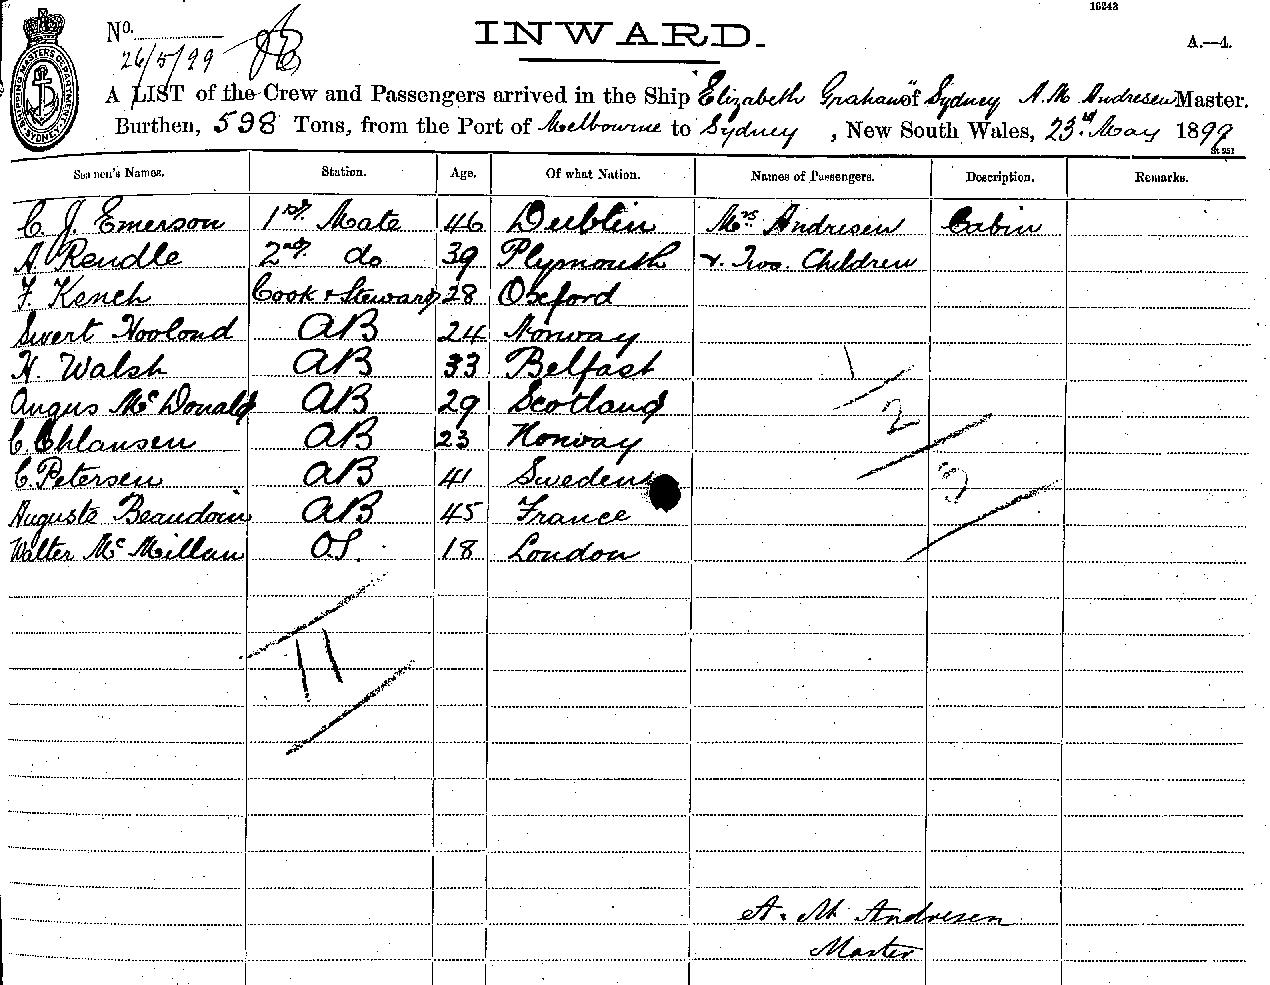 16243
No.
26/5/99
INWARD.
A.—4.
A LIST of the Crew and Passengers arrived in the Ship Elizabeth Graham of Sydney A. M. Andresen Master.
Burthen, 598 Tons, from the Port of Melbourne to Sydney, New South Wales, 23rd May 1899
Seamen's Names. Station. Age. Of what Nation. Names of Passengers. Description. Remarks.
C. J. Emerson 1st Mate 46 Dublin Mrs Andresen Cabin
A Rendle 2nd do 39 Plymouth & Two Children
F. Kench Cook & Steward 28 Oxford
Sivert Hoolond AB 24 Norway
H. Walsh AB 33 Belfast 1
Angus McDonald AB 29 Scotland 2
C. Ehlansen AB 23 Norway
C. Petersen AB 41 Sweden 3
Auguste Beaudoin AB 45 France
Walter McMillan O.S. 18 London
11
A. M. Andresen
Master